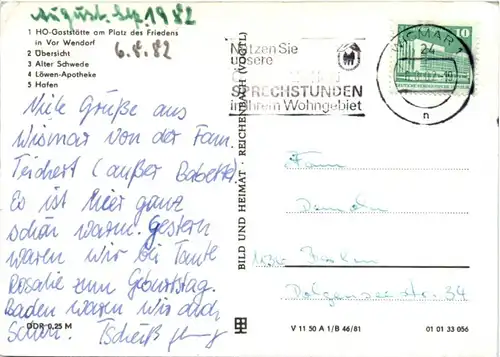 August-Sep. 1982
6.8.82
1 HO-Gaststätte am Platz des Friedens
in Vor Wendorf
2 Übersicht
3 Alter Schwede
4 Löwen-Apotheke
5 Hafen
Viele Grüße aus
Wismar von der Fam.
Teichert (außer Babette).
Es ist hier ganz
schön warm. Gestern
waren wir bei Tante
Rosalie zum Geburtstag.
Baden waren wir auch
schon.
DDR 0,25 M
BILD UND HEIMAT · REICHENBACH (VOGTL)
Nutzen Sie
unsere
SPRECHSTUNDEN
in Ihrem Wohngebiet
WISMAR 1
24
n
10
Fam
Berlin
Dolgenseestr. 34
V 11 50 A 1/B 46/81
01 01 33 056